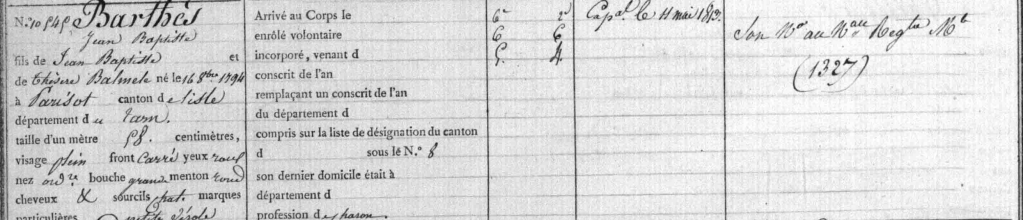 N.º 10545 Barthès
Jean Baptiste
fils de Jean Baptiste et
de Thérèse né le 16 8bre 1794
à Parisot canton de l'isle
département du tarn.
taille d'un mètre 58. centimètres,
visage plein front Carré yeux roux
nez ordre bouche grande menton rond
cheveux & sourcils chat. marques
particulières petite vérole
Arrivé au Corps le
enrôlé volontaire
incorporé, venant d
conscrit de l'an
remplaçant un conscrit de l'an
du département d
compris sur la liste de désignation du canton
d sous le N.º 8
son dernier domicile était à
département d
profession de charon
6e 2e
6 6
5. 4.
Capal. le 11 mai 1813.
Son No au Nau Regtre Mle
(1327)